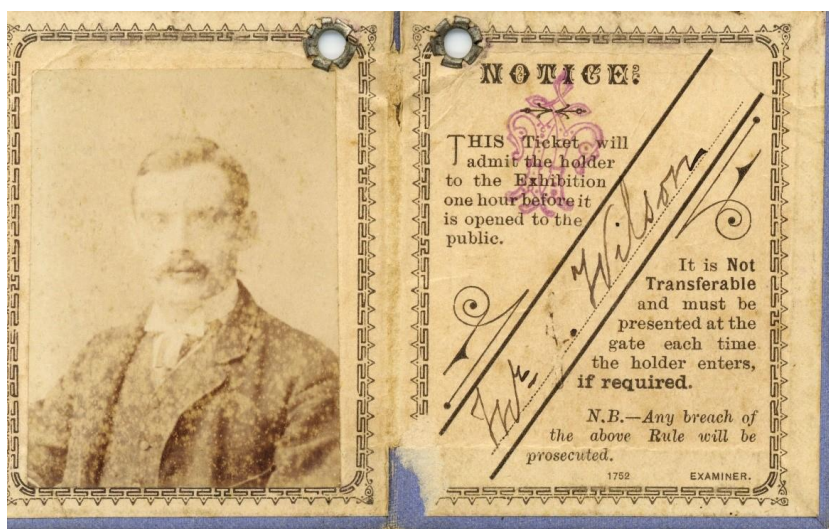 NOTICE:
THIS Ticket will
admit the holder
to the Exhibition
one hour before it
is opened to the
public.
Mr. J. Wilson
It is Not
Transferable
and must be
presented at the
gate each time
the holder enters,
if required.
N.B.—Any breach of
the above Rule will be
prosecuted.
1752 EXAMINER.